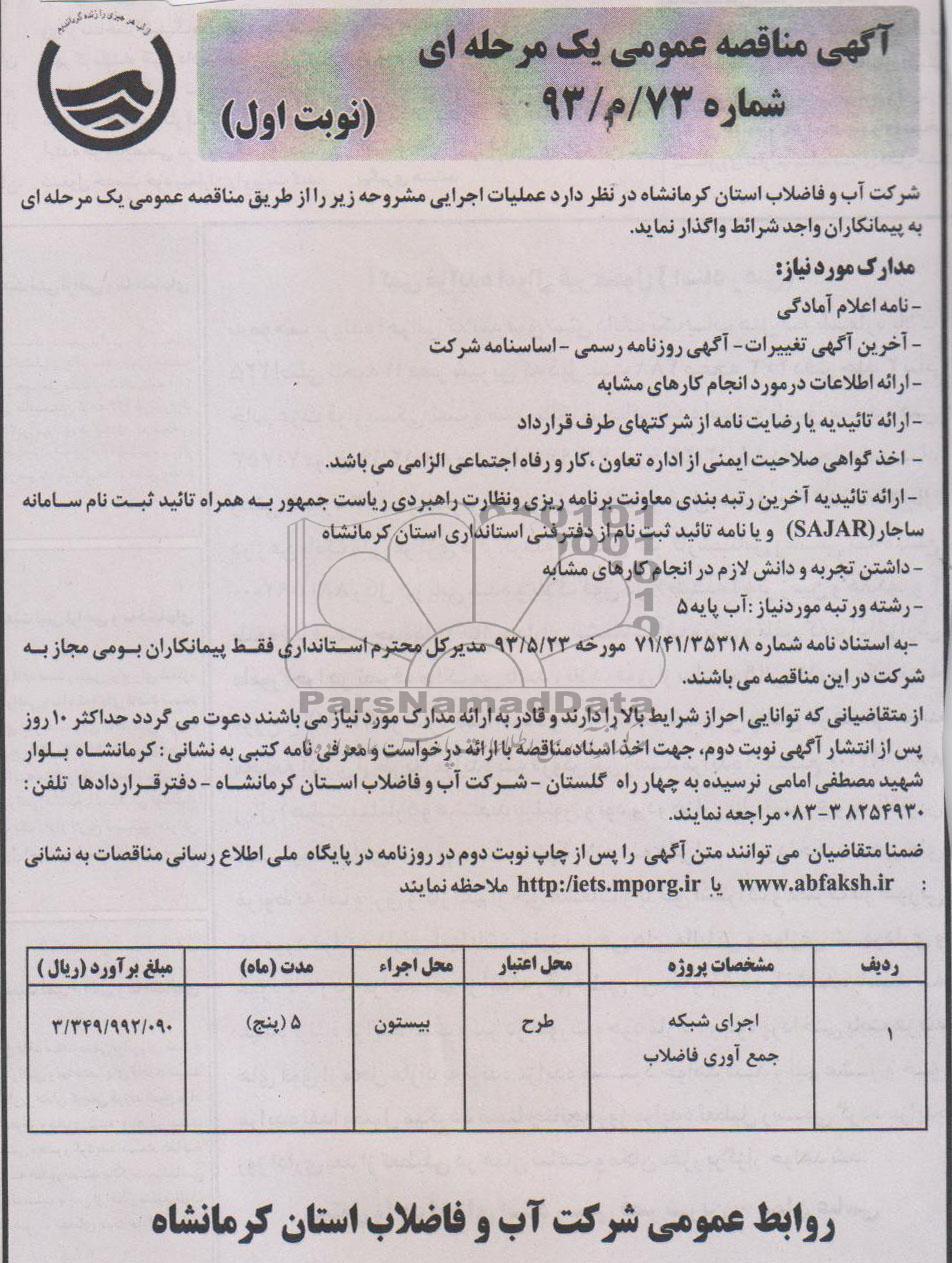 و از آب هر چیزی را زنده گردانیدیم
آگهی مناقصه عمومی یک مرحله ای
شماره ۷۳/م/۹۳
(نوبت اول)
شرکت آب و فاضلاب استان کرمانشاه در نظر دارد عملیات اجرایی مشروحه زیر را از طریق مناقصه عمومی یک مرحله ای
به پیمانکاران واجد شرائط واگذار نماید.
مدارک مورد نیاز:
- نامه اعلام آمادگی
- آخرین آگهی تغییرات- آگهی روزنامه رسمی - اساسنامه شرکت
- ارائه اطلاعات درمورد انجام کارهای مشابه
- ارائه تائیدیه یا رضایت نامه از شرکتهای طرف قرارداد
- اخذ گواهی صلاحیت ایمنی از اداره تعاون ،کار و رفاه اجتماعی الزامی می باشد.
- ارائه تائیدیه آخرین رتبه بندی معاونت برنامه ریزی ونظارت راهبردی ریاست جمهور به همراه تائید ثبت نام سامانه
ساجار(SAJAR) و یا نامه تائید ثبت نام از دفترفنی استانداری استان کرمانشاه
- داشتن تجربه و دانش لازم در انجام کارهای مشابه
- رشته ورتبه موردنیاز :آب پایه ۵
-به استناد نامه شماره ۷۱/۴۱/۳۵۳۱۸ مورخه ۹۳/۵/۲۳ مدیرکل محترم استانداری فقط پیمانکاران بومی مجاز به
شرکت در این مناقصه می باشند.
از متقاضیانی که توانایی احراز شرایط بالا را دارند و قادر به ارائه مدارک مورد نیاز می باشند دعوت می گردد حداکثر ۱۰ روز
پس از انتشار آگهی نوبت دوم، جهت اخذ اسناد مناقصه با ارائه درخواست و معرفی نامه کتبی به نشانی : کرمانشاه بلوار
شهید مصطفی امامی نرسیده به چهار راه گلستان - شرکت آب و فاضلاب استان کرمانشاه - دفترقراردادها تلفن :
۰۸۳-۳۸۲۵۴۹۳۰ مراجعه نمایند.
ضمنا متقاضیان می توانند متن آگهی را پس از چاپ نوبت دوم در روزنامه در پایگاه ملی اطلاع رسانی مناقصات به نشانی
: www.abfaksh.ir یا http:/iets.mporg.ir ملاحظه نمایند
ردیف مشخصات پروژه محل اعتبار محل اجراء مدت (ماه) مبلغ برآورد (ریال )
۱ اجرای شبکه طرح بیستون ۵ (پنج) ۳/۳۴۹/۹۹۲/۰۹۰
جمع آوری فاضلاب
روابط عمومی شرکت آب و فاضلاب استان کرمانشاه
ParsNamadData